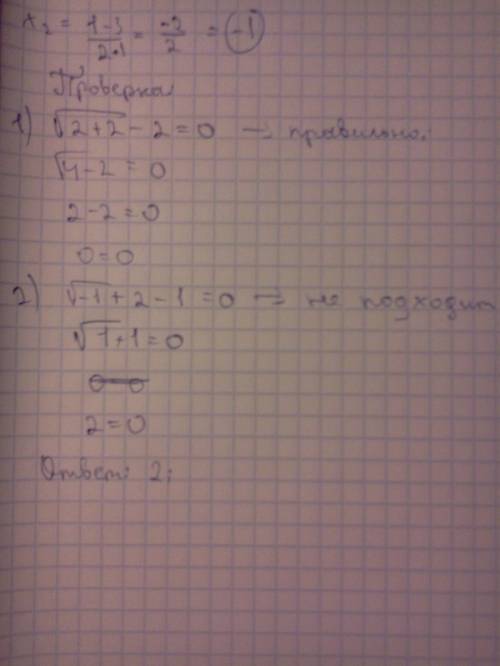 x₂ = (1-3)/(2·1) = -2/2 = -1
Проверка
1) √(2+2) - 2 = 0 → правильно.
√4 - 2 = 0
2 - 2 = 0
0 = 0
2) √-1 + 2 - 1 = 0 → не подходит
√1 + 1 = 0
2 = 0
Ответ: 2;